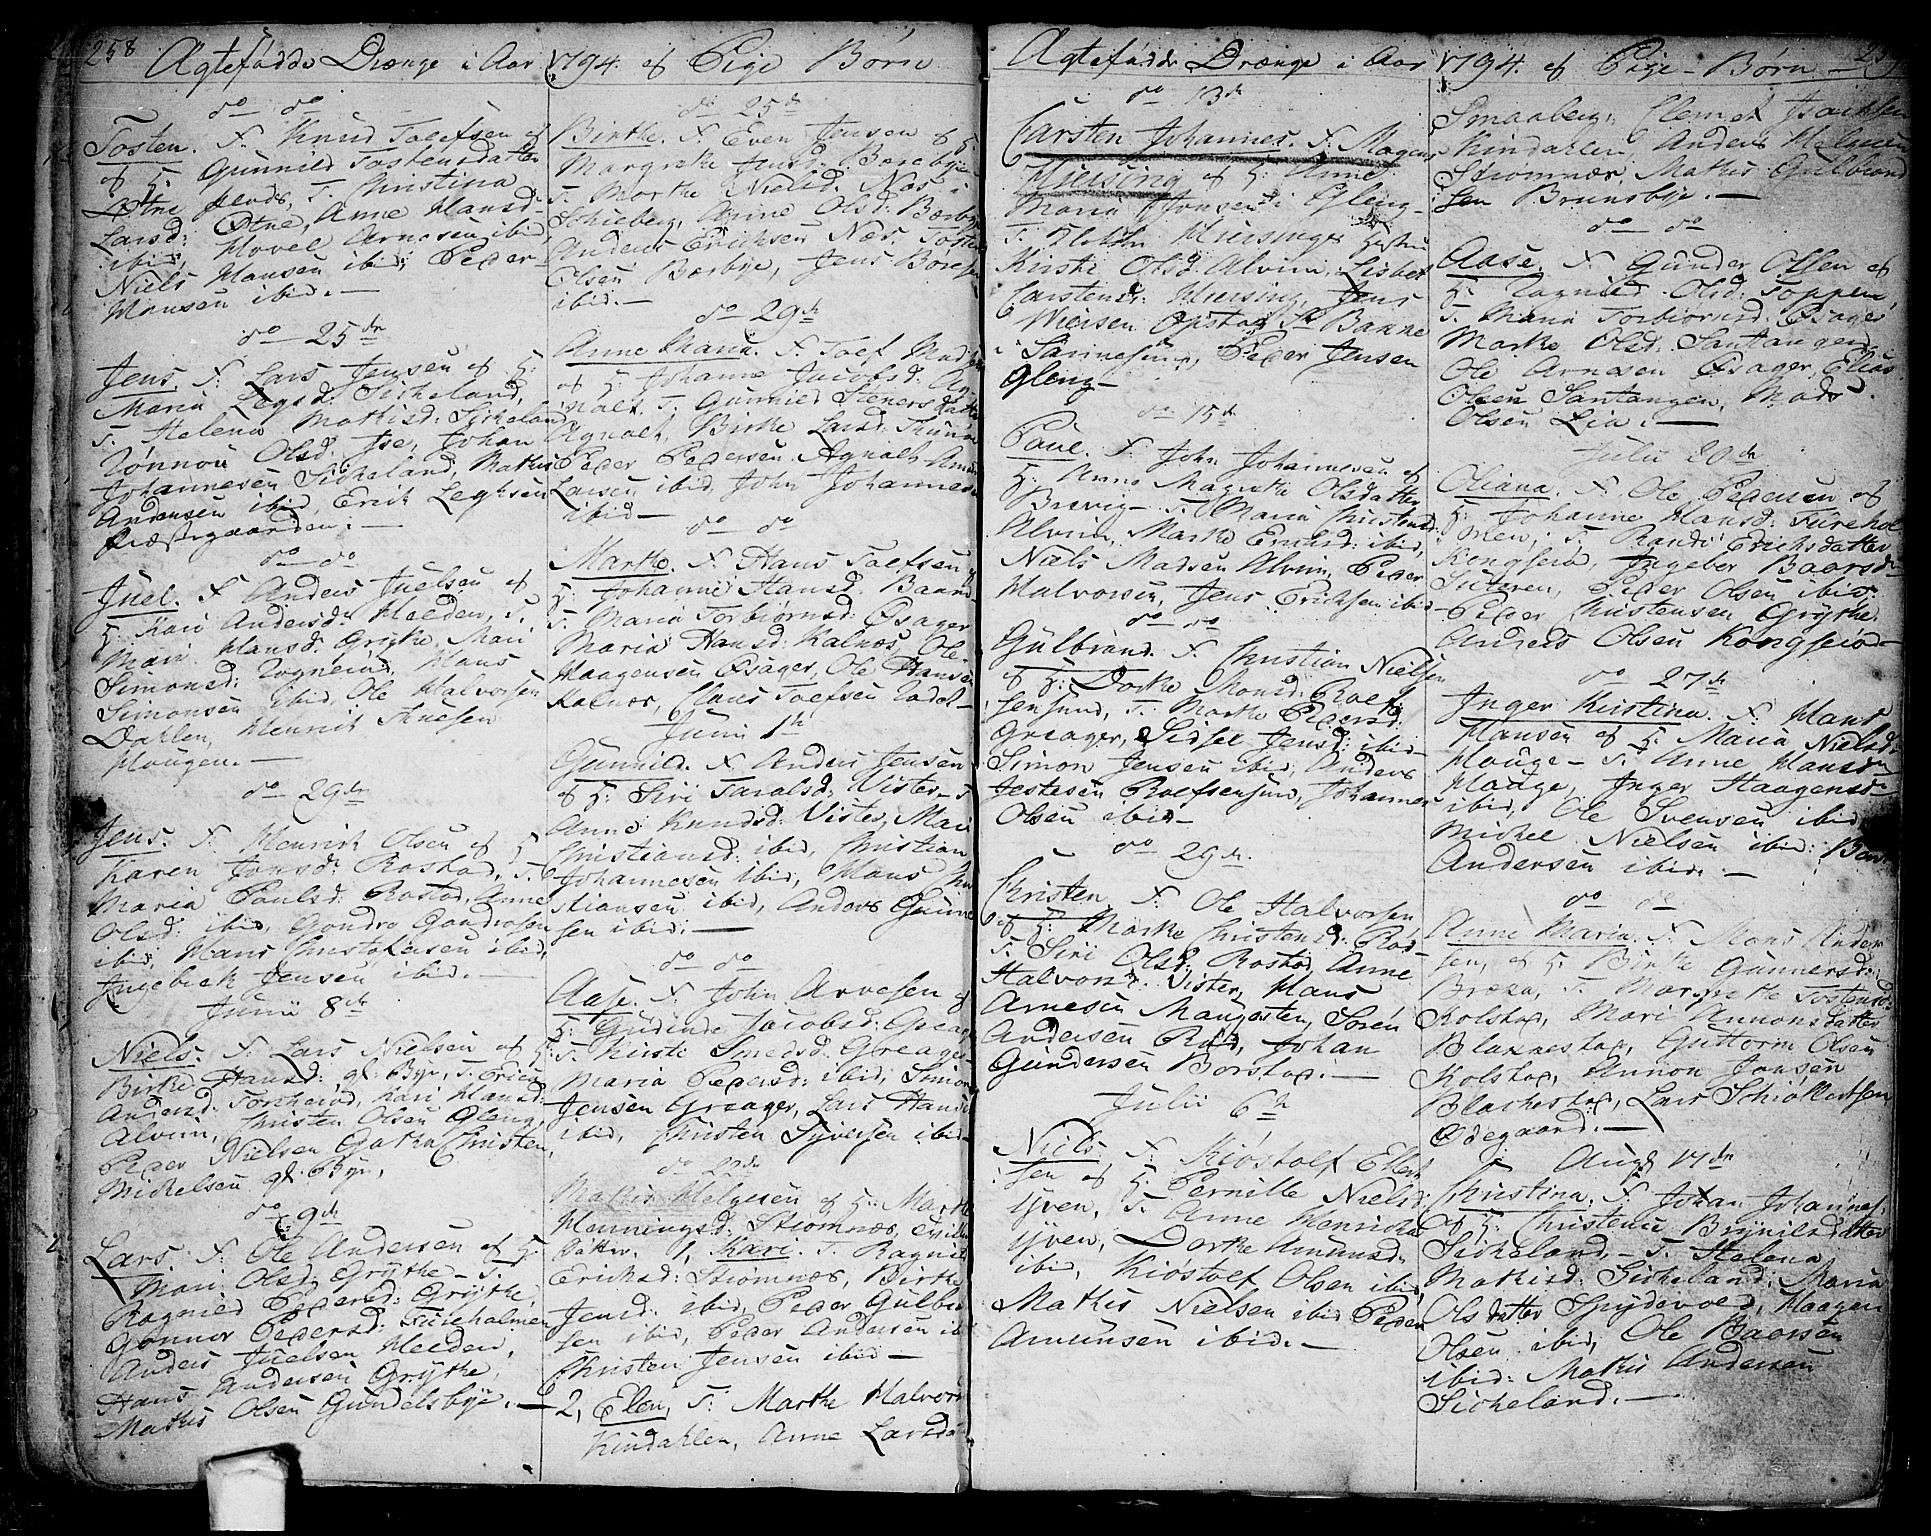 258
Agtefødde Drænge i Aar 1794. af Pige Børn
do do
Tosten. F. Knud Toefsen af
H: Gunnild Tostensdatter
Christina
Larsd: Otne, Anne Hansd:
ibid, Hovel Arnesen ibid,
Niels Hansen ibid, Peder
Hansen ibid. —
do 25de
Jens. F. Lars Jensen af H:
Maria Legsd: Sikeland,
T. Helena Mathisd: Sikeland
Rønnou Olsd: Ise, Johan
Johannesen Sikeland, Mathis
Andersen ibid, Erik Leghsen
Præstgaarden. —
do do
Juel. F. Anders Juelsen af
H: Kari Andersd: Heeden, T.
Mari Hansd: Grytke, Mari
Simonsd: Rogneind, Hans
Simonsen ibid, Ole Halvorsen
Dahlen, Henrik Andersen
Haugen. —
do 29de
Jens. F. Henrik Olsen af H:
Karen Jonsd: Rostad, T.
Maria Poulsd: Rostad, Anne
Olsd: ibid, Gondro Gondrosen
ibid, Hans Christophersen ibid,
Ingebret Jensen ibid. —
Junii 8de
Niels. F. Lars Nielsen af H:
Birthe Hansd: gl: Bye, T.
Andersd: Torsheiod, Kari Hansd:
Alvim, Christen Olsen Gleng,
Peder Nielsen Gatha, Christen
Mickelsen gl: Bye,
do 9de
Lars. F. Ole Andersen af H:
Mari Olsd: Grythe — T.
Ragnild Pedersd: Grythe,
Gonnor Pedersd: Tureholmen
Anders Juelsen Heeden,
Hans Andersen Grythe,
Mathis Olsen Gundelsbye. —
do 25de
Birthe. F. Even Jensen af H:
Margrethe Jensd: Borebye
T. Marthe Nielsd: Næs i
Schieberg, Anne Olsd: Borebye
Anders Erichsen Næs, Tosten
Elsen Borbye, Jens Boresen
ibid. —
do 29de
Anne Maria. F. Toef Madsen
af H: Johanne Jacobsd: Ag-
nalt, T. Gunnild Stenersdatter
Agnalt, Birthe Larsd: Thune
Peder Pedersen Agnalt, Amund
Larsen ibid, John Johannesen
ibid —
do do
Marthe. F. Hans Toefsen af
H: Johanne Hansd: Baand-
T. Maria Torbiørnsd: Øsager
Maria Hansd: Kalnæs, Ole
Haagensen Øsager, Ole Hansen
Kalnæs, Claus Toefsen Rodel —
Junii 1te
Gunnild. F. Anders Jensen
af H: Siri Taralsd: Vister — T.
Anne Knudsd: Vister, Mari
Christiansd: ibid, Christian
Johannesen ibid, Hans Chri
stiansen ibid, Anders Gunne
sen ibid. —
do do
Aase. F. John Arvesen af
H: Gudinde Jacobsd: Greager
T. Kirsti Smedsd: Greager
Maria Pedersd: ibid, Simon
Jensen Greager, Lars Hansen
ibid, Christen Syversen ibid —
do 22de
Mathis Helgesen af H: Marthe
Henningsd: Stromnæs, tvillin
Døttre. 1, Kari. T. Ragnild
Ericksd: Stromnæs, Birthe
Jensd: ibid, Peder Gulbrand
sen ibid, Peder Andersen ibid
Christen Jensen ibid —
2, Elen, T: Marthe Halvorsd
Kindahlen, Anne Larsd
Agtefødde Drænge i Aar 1794. af Pige-Børn — 259
do 13de
Carsten Johannes. F. Mogens
Hiersing af H: Anne
Maria Jonsen i Gleng —
T. Hiersinger
Kirsti Olsd: Alvim, Lisbet
Carstensd: Hiersing, Jens
Nielsen Opstad, Banne
i Sarinesund, Peder Jensen
Gleng —
do 15de
Paul. F. John Johannesen af
H: Anne Magrethe Olsdatter
Brevig — T. Maria Christensd:
Alvim, Marthe Ericksd: ibid,
Niels Madsen Alvim, Peder
Halvorsen, Jens Ericksen ibid —
do do
Gulbrand. F. Christian Nielsen
af H: Dorthe Monsd: Roelf-
sensund, T. Marthe Pedersd:
Greager, Sidsel Jensd: ibid —
Simon Jensen ibid, Anders
Jestesen Roelfsensund, Johannes
Olsen ibid —
do 29de
Christen. F. Ole Halvorsen
af H: Marthe Christensd: Rød
T. Siri Olsd: Rostad, Anne
Halvorsd: Vister, Hans
Arnesen Maugesten, Søren
Andersen Rød, Johan
Gundersen Borstad. —
Julii 6te
Niels. F. Kiøstolf Ellert
sen af H: Pernille Nielsd:
Yven, T. Anne Henriksd
Yven, Dorthe Amunsd:
ibid, Kiøstolf Olsen ibid,
Mathis Nielsen ibid, Peder
Amunsen ibid. —
Smaaberg: Clemet Isacksen
Kindahlen, Anders Halvorsen
Stromnæs, Mathis Gulbrand
sen Brunsbye. —
do do
Aase. F. Gunder Olsen af
H: Ragnild Olsd: Toppen,
T. Maria Torbiørnsd: Øsager
Marthe Olsd: Santangen
Ole Arnesen Øsager, Elias
Olsen Santangen, Mads
Olsen Lia. —
Julii 20de
Oliana. F. Ole Pedersen af
H: Johanne Hansd: Turehol
men, T. Randi Ericksdatter
Kongseiod, Ingeber Baarsd:
Peder Olsen ibid:
Peder Christensen Grythe
Anders Olsen Kongseiod —
do 27de
Inger Kirstina. F. Hans
Hansen af H: Maria Nielsd:
Hauge — T. Anne Hansd:
Hauge, Inger Haagensd:
ibid, Ole Svensen ibid
Michel Nielsen ibid:
Andersen ibid. —
do do
Anne Maria. F. Mons Ander
sen, af H: Birthe Gunnersd:
Bræka, T. Margrethe Tostensd:
Kolstad, Mari Annonsdatter
Blakkestad, Guttorm Olsen
Kolstad, Annon Jonsen
Blackestad, Lars Schiøllertsen
Ødegaard. —
Aug 17de
Christina. F. Johan Johannes.
af H: Christence Bryniulsdatter
Sikeland — T. Helena
Mathisd: Sikeland: Maria
Olsdatter Spydevold, Haagen
Olsen ibid, Ole Baarsen
ibid: Mathis Andersen
Sikeland. —